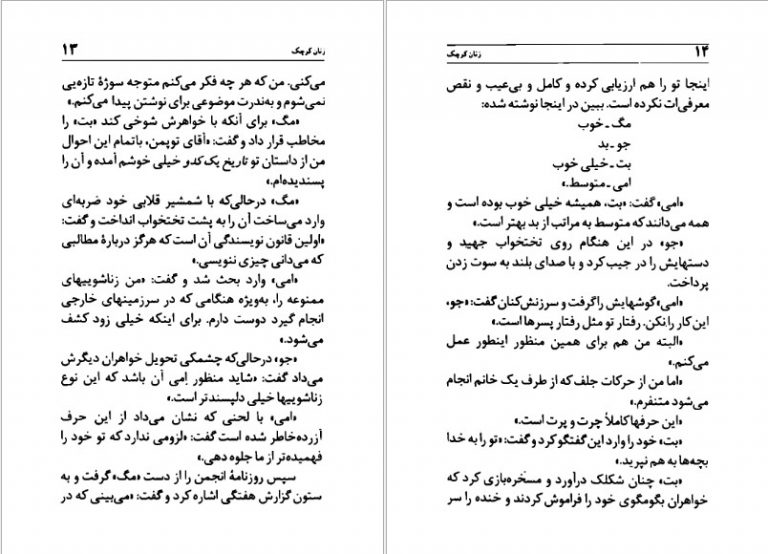 زنان کوچک ۱۳
می‌کنی. من که هر چه فکر می‌کنم متوجه سوژهٔ تازه‌یی
نمی‌شوم و به‌ندرت موضوعی برای نوشتن پیدا می‌کنم.»
«مگ» برای آنکه با خواهرش شوخی کند «بت» را
مخاطب قرار داد و گفت: «آقای توپمن، باتمام این احوال
من از داستان تو تاریخ یک کدو خیلی خوشم آمده و آن را
پسندیده‌ام.»
«مگ» درحالی‌که با شمشیر قلابی خود ضربه‌ای
وارد می‌ساخت آن را به پشت تختخواب انداخت و گفت:
«اولین قانون نویسندگی آن است که هرگز دربارهٔ مطالبی
که می‌دانی چیزی ننویسی.»
«امی» وارد بحث شد و گفت: «من زناشوییهای
ممنوعه را، به‌ویژه هنگامی که در سرزمینهای خارجی
انجام گیرد دوست دارم. برای اینکه خیلی زود کشف
می‌شود.»
«جو» درحالی‌که چشمکی تحویل خواهران دیگرش
می‌داد گفت: «شاید منظور اِمی آن باشد که این نوع
زناشوییها خیلی دلپسندتر است.»
«امی» با لحنی که نشان می‌داد از این حرف
آزرده‌خاطر شده است گفت: «لزومی ندارد که تو خود را
فهمیده‌تر از ما جلوه دهی.»
سپس روزنامهٔ انجمن را از دست «مگ» گرفت و به
ستون گزارش هفتگی اشاره کرد و گفت: «می‌بینی که در
۱۴ زنان کوچک
اینجا تو را هم ارزیابی کرده و کامل و بی‌عیب و نقص
معرفی‌ات نکرده است. ببین در اینجا نوشته شده:
مگ ـ خوب
جو ـ بد
بت ـ خیلی خوب
امی ـ متوسط.»
«امی» گفت: «بت، همیشه خیلی خوب بوده است و
همه می‌دانند که متوسط به مراتب از بد بهتر است.»
«جو» در این هنگام روی تختخواب جهید و
دستهایش را در جیب کرد و با صدای بلند به سوت زدن
پرداخت.
«امی» گوشهایش را گرفت و سرزنش‌کنان گفت: «جو،
این کار را نکن. رفتار تو مثل رفتار پسرها است.»
«البته من هم برای همین منظور اینطور عمل
می‌کنم.»
«اما من از حرکات جلف که از طرف یک خانم انجام
می‌شود متنفرم.»
«این حرفها کاملاً چرت و پرت است.»
«بت» خود را وارد این گفتگو کرد و گفت: «تو را به خدا
بچه‌ها به هم نپرید.»
«بت» چنان شکلک درآورد و مسخره‌بازی کرد که
خواهران بگومگوی خود را فراموش کردند و خنده را سر